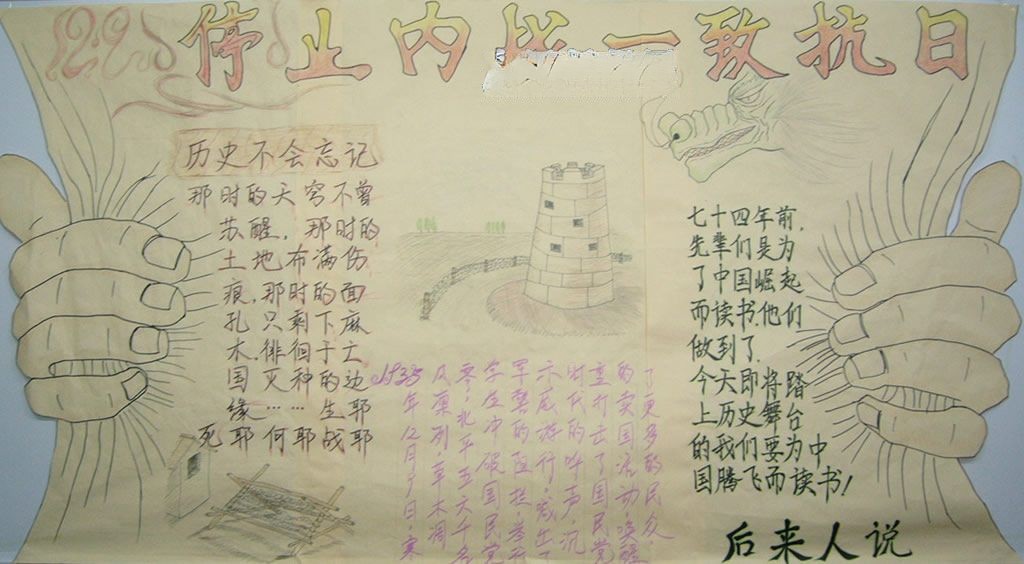 12.9
停止内战一致抗日
历史不会忘记
那时的天穹不曾
苏醒，那时的
土地布满伤
痕，那时的面
孔只剩下麻
木，徘徊于亡
国灭种的边
缘……生耶
死耶何耶战耶
1935年12月9日，寒
风凛冽，草木凋
零，北平五六千名
学生冲破国民党
军警的阻挠举行
示威游行，喊出了
时代的呼声，沉
重打击了国民党
的卖国活动，唤醒
了更多的民众。
七十四年前，
先辈们是为
了中国崛起
而读书，他们
做到了。
今天即将踏
上历史舞台
的我们要为中
国腾飞而读书！
后来人说